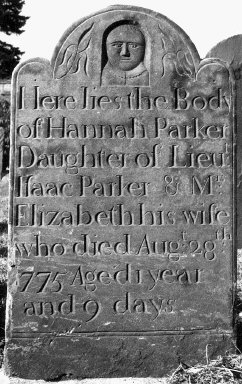 Here lies the Body
of Hannah Parker
Daughter of Lieut
Isaac Parker & Mrs
Elizabeth his wife
who died Augst 28th
1775 Aged 1 year
and 9 days